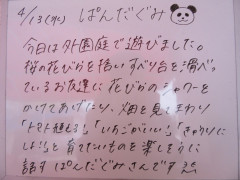 4/13(水) ぱんだぐみ
今日は外園庭で遊びました。
桜の花びらを拾い すべり台を滑べっ
ているお友達に花びらのシャワーを
かけてあげたり、畑を見てまわり
「トマト植える!」「いちごがいい!」「きゅうりに
しよう」と育てたいものを楽しそうに
話す ぱんだぐみさんです